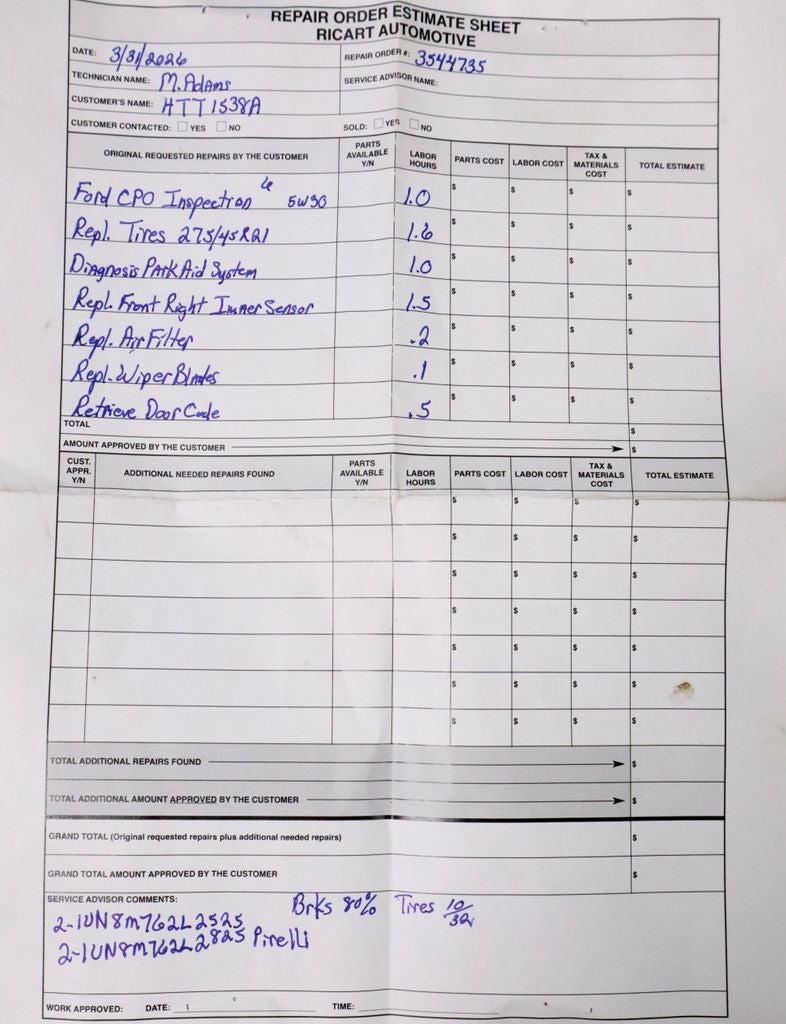 REPAIR ORDER ESTIMATE SHEET
RICART AUTOMOTIVE
DATE: 3/31/2026 REPAIR ORDER #: 3544735
TECHNICIAN NAME: M. Adams SERVICE ADVISOR NAME:
CUSTOMER'S NAME: HTT1538A
CUSTOMER CONTACTED: YES NO SOLD: YES NO
ORIGINAL REQUESTED REPAIRS BY THE CUSTOMER PARTS AVAILABLE Y/N LABOR HOURS PARTS COST LABOR COST TAX & MATERIALS COST TOTAL ESTIMATE
Ford CPO Inspection 5W30 1.0 $ $ $ $
Repl. Tires 275/45R21 1.6 $ $ $ $
Diagnosis Park Aid System 1.0 $ $ $ $
Repl. Front Right Inner Sensor 1.5 $ $ $ $
Repl. Air Filter .2 $ $ $ $
Repl. Wiper Blades .1 $ $ $ $
Retrieve Door Code .5 $ $ $ $
TOTAL $
AMOUNT APPROVED BY THE CUSTOMER $
CUST. APPR. Y/N ADDITIONAL NEEDED REPAIRS FOUND PARTS AVAILABLE Y/N LABOR HOURS PARTS COST LABOR COST TAX & MATERIALS COST TOTAL ESTIMATE
$ $ $ $
$ $ $ $
$ $ $ $
$ $ $ $
$ $ $ $
$ $ $ $
$ $ $ $
TOTAL ADDITIONAL REPAIRS FOUND $
TOTAL ADDITIONAL AMOUNT APPROVED BY THE CUSTOMER $
GRAND TOTAL (Original requested repairs plus additional needed repairs) $
GRAND TOTAL AMOUNT APPROVED BY THE CUSTOMER $
SERVICE ADVISOR COMMENTS: Brks 80% Tires 10/32
2-1UN8M762L2525
2-1UN8M762L2825 Pirelli
WORK APPROVED: DATE: TIME: